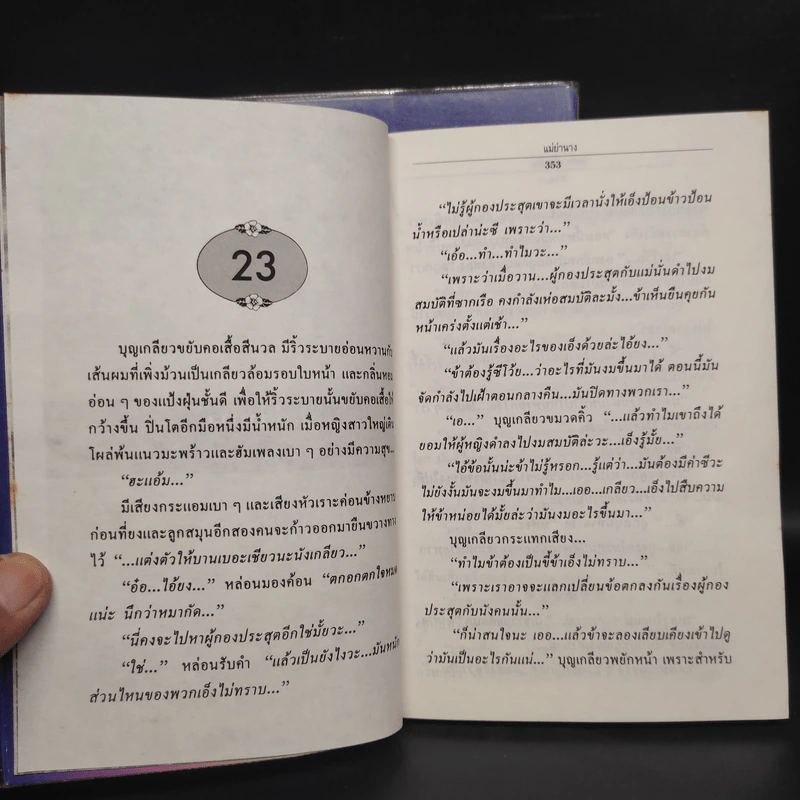 23
บุญเกลียวขยับคอเสื้อสีนวล มีริ้วระบายอ่อนหวานกับ
เส้นผมที่เพิ่งม้วนเป็นเกลียวล้อมรอบใบหน้า และกลิ่นหอม
อ่อน ๆ ของแป้งฝุ่นชั้นดี เพื่อให้ริ้วระบายนั้นขยับคอเสื้อให้
กว้างขึ้น ปิ่นโตอีกมือหนึ่งมีน้ำหนัก เมื่อหญิงสาวใหญ่เดิน
โผล่พ้นแนวมะพร้าวและฮัมเพลงเบา ๆ อย่างมีความสุข...
“ฮะแอ้ม...”
มีเสียงกระแอมเบา ๆ และเสียงหัวเราะค่อนข้างหยาบ
ก่อนที่ยงและลูกสมุนอีกสองคนจะก้าวออกมายืนขวางทาง
ไว้ “...แต่งตัวให้บานเบอะเชียวนะนังเกลียว...”
“อ๋อ...ไอ้ยง...” หล่อนมองค้อน “ตกอกตกใจหมด
แน่ะ นึกว่าหมากัด...”
“นี่คงจะไปหาผู้กองประสุตอีกใช่มั้ยวะ...”
“ใช่...” หล่อนรับคำ “แล้วเป็นยังไงวะ...มันหนัก
ส่วนไหนของพวกเอ็งไม่ทราบ...”
แม่ย่านาง
353
“ไม่รู้ผู้กองประสุตเขาจะมีเวลานั่งให้เอ็งป้อนข้าวป้อน
น้ำหรือเปล่าน่ะซี เพราะว่า...”
“เอ้อ...ทำ...ทำไมวะ...”
“เพราะว่าเมื่อวาน...ผู้กองประสุตกับแม่นั่นดำไปงม
สมบัติที่ซากเรือ คงกำลังเห่อสมบัติละมั้ง...ข้าเห็นยืนคุยกัน
หน้าเคร่งตั้งแต่เช้า...”
“แล้วมันเรื่องอะไรของเอ็งด้วยล่ะไอ้ยง...”
“ข้าต้องรู้ซีโว้ย...ว่าอะไรที่มันงมขึ้นมาได้ ตอนนี้มัน
จัดกำลังไปเฝ้าตอนกลางคืน...มันปิดทางพวกเรา...”
“เอ...” บุญเกลียวขมวดคิ้ว “...แล้วทำไมเขาถึงได้
ยอมให้ผู้หญิงดำลงไปงมสมบัติล่ะวะ...เอ็งรู้มั้ย...”
“ไอ้ข้อนั้นน่ะข้าไม่รู้หรอก...รู้แต่ว่า...มันต้องมีค่าซีวะ
ไม่ยังงั้นมันจะงมขึ้นมาทำไม...เออ...เกลียว...เอ็งไปสืบความ
ให้ข้าหน่อยได้มั้ยล่ะว่ามันงมอะไรขึ้นมา...”
บุญเกลียวกระแทกเสียง...
“ทำไมข้าต้องเป็นขี้ข้าเอ็งไม่ทราบ...”
“เพราะเราอาจจะแลกเปลี่ยนข้อตกลงกันเรื่องผู้กอง
ประสุตกับนังคนนั้น...”
“ก็น่าสนใจนะ เออ...แล้วข้าจะลองเลียบเคียงเข้าไปดู
ว่ามันเป็นอะไรกันแน่...” บุญเกลียวพยักหน้า เพราะสำหรับ